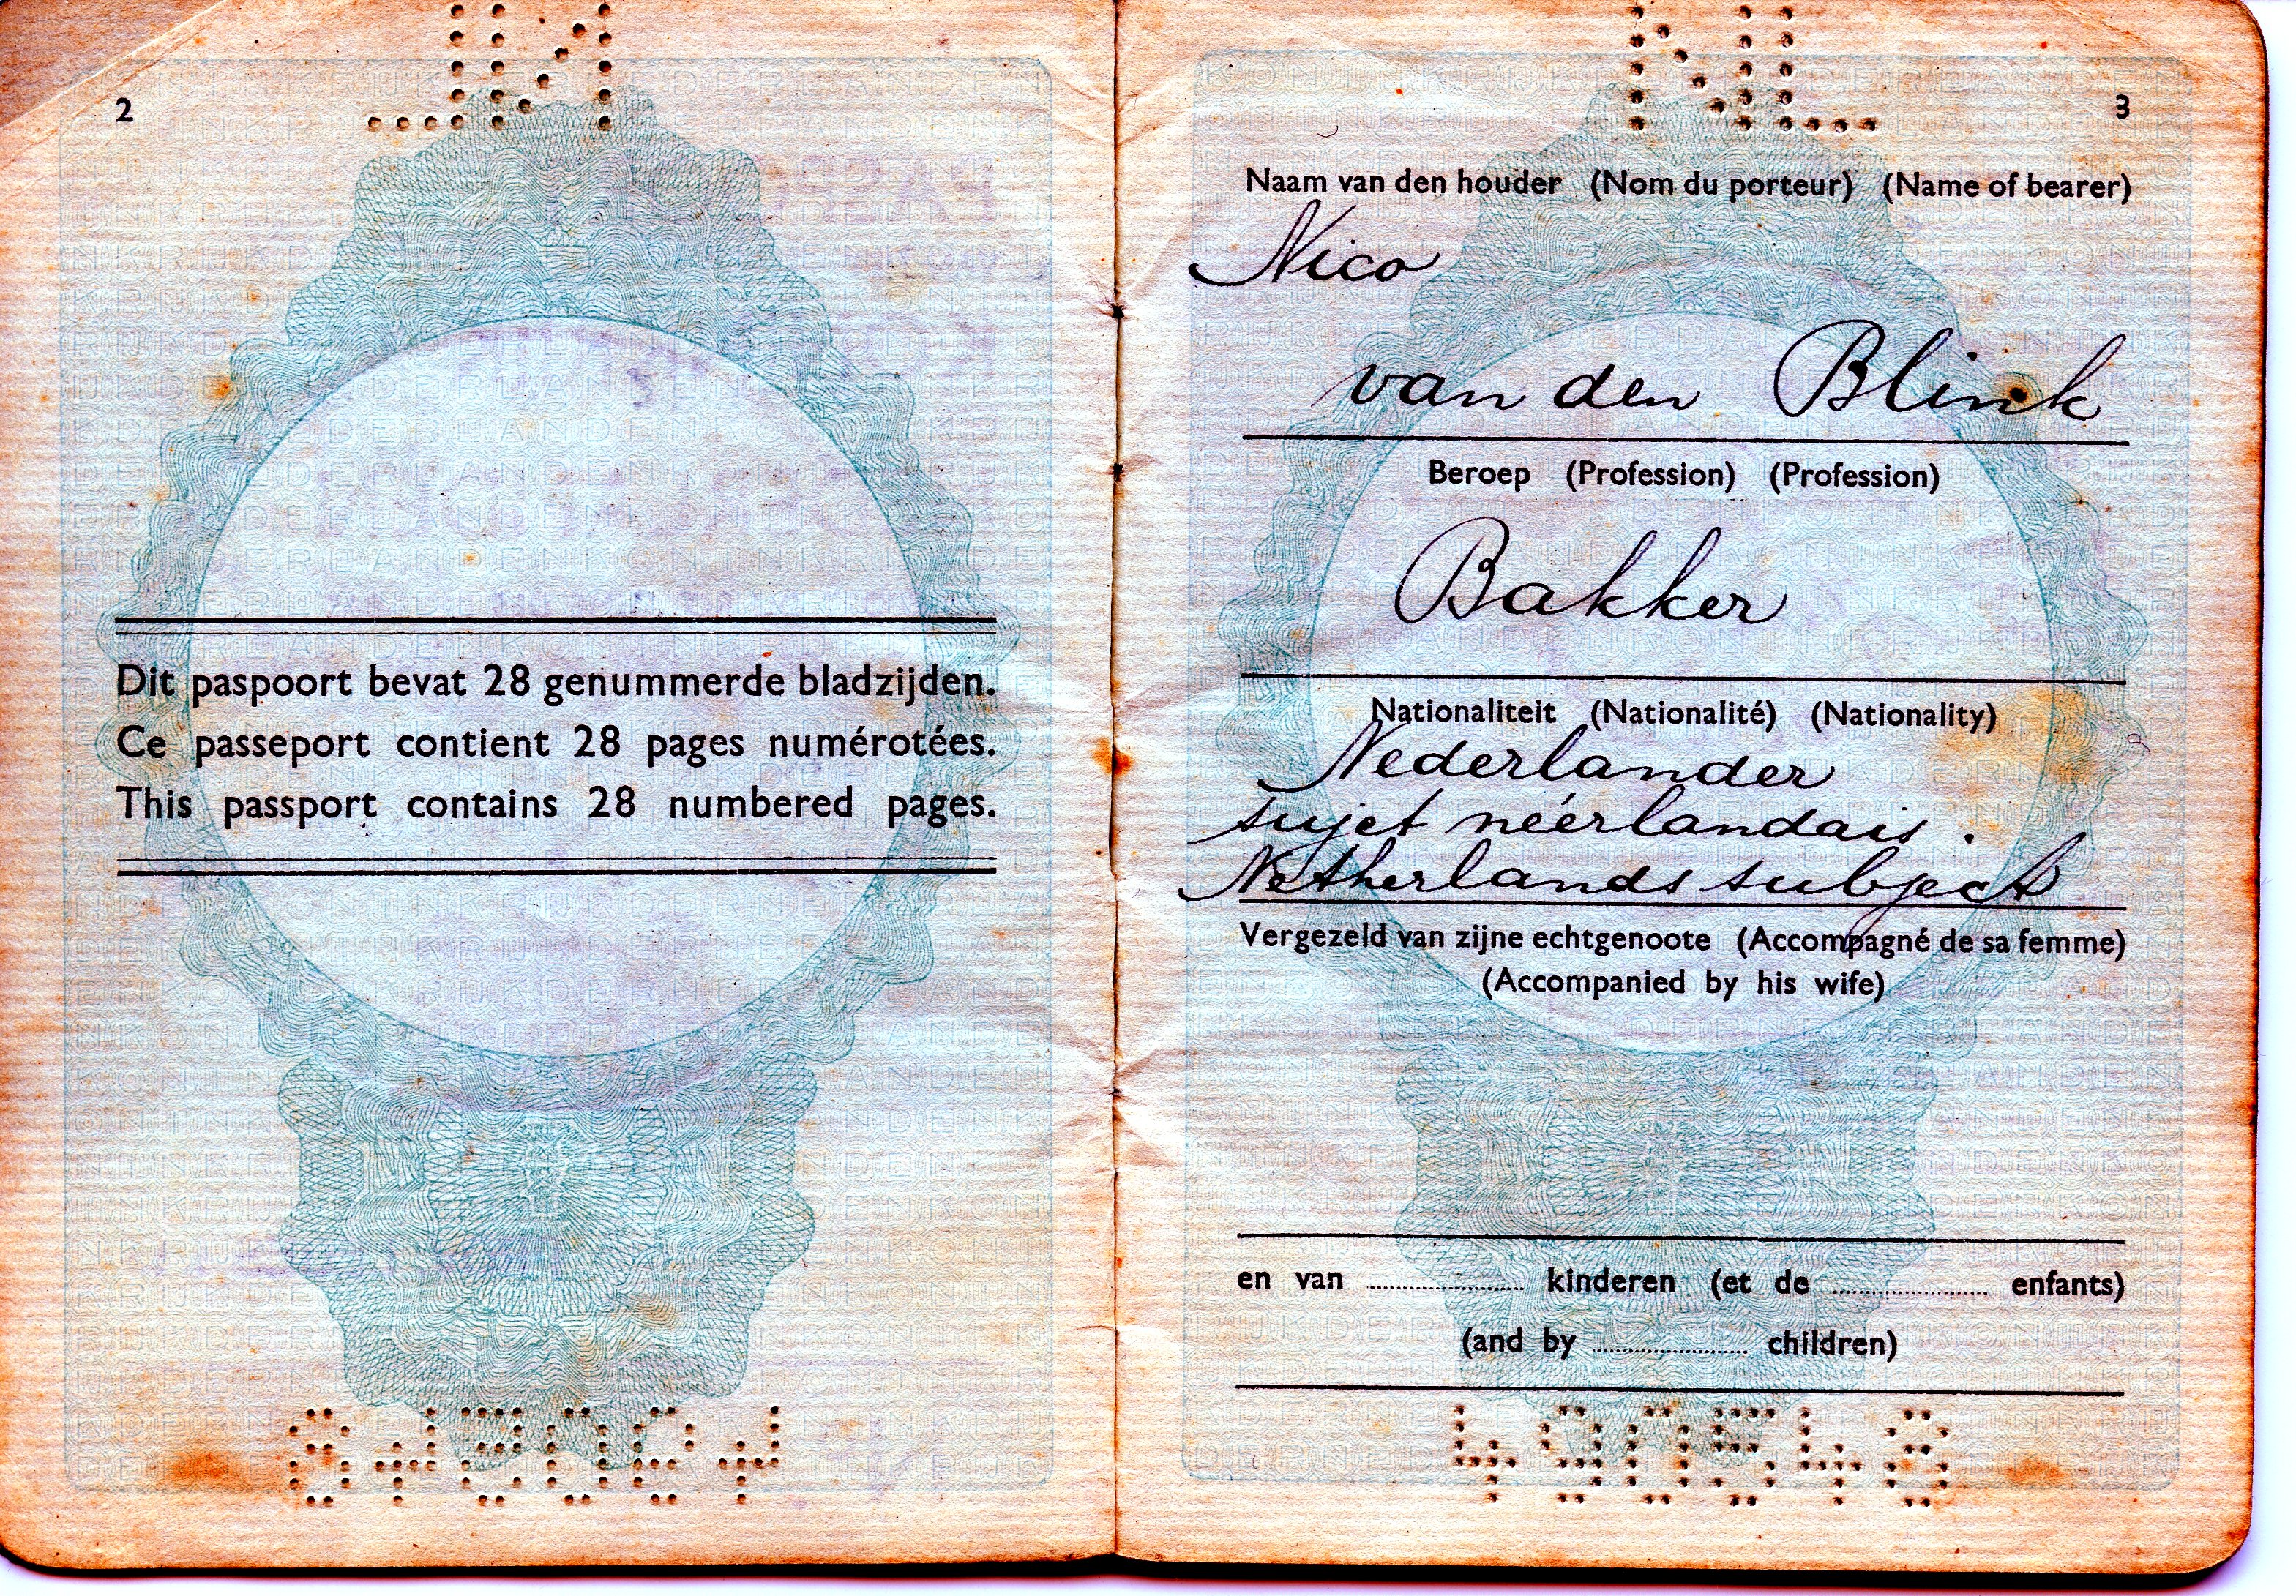 2
Dit paspoort bevat 28 genummerde bladzijden.
Ce passeport contient 28 pages numérotées.
This passport contains 28 numbered pages.
NL
3
Naam van den houder (Nom du porteur) (Name of bearer)
Nico
van den Blink
Beroep (Profession) (Profession)
Bakker
Nationaliteit (Nationalité) (Nationality)
Nederlander
sujet néerlandais.
Netherlands subject
Vergezeld van zijne echtgenoote (Accompagné de sa femme)
(Accompanied by his wife)
en van .......... kinderen (et de .......... enfants)
(and by .......... children)